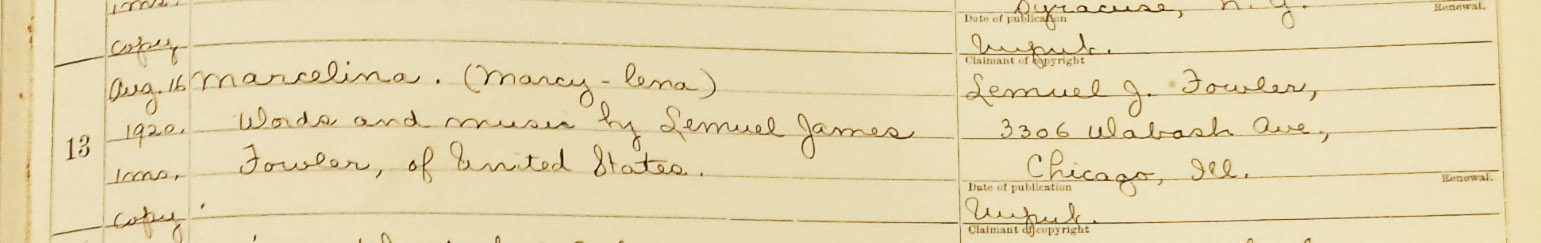 Syracuse, N. Y.
Date of publication Renewal.
copy Unpub.
Claimant of copyright
Aug. 16 Marcelina. (Marcy-lena) Lemuel J. Fowler,
13 1920. Words and music by Lemuel James 3306 Wabash Ave,
1 ms. Fowler, of United States. Chicago, Ill.
Date of publication Renewal.
copy Unpub.
Claimant of copyright